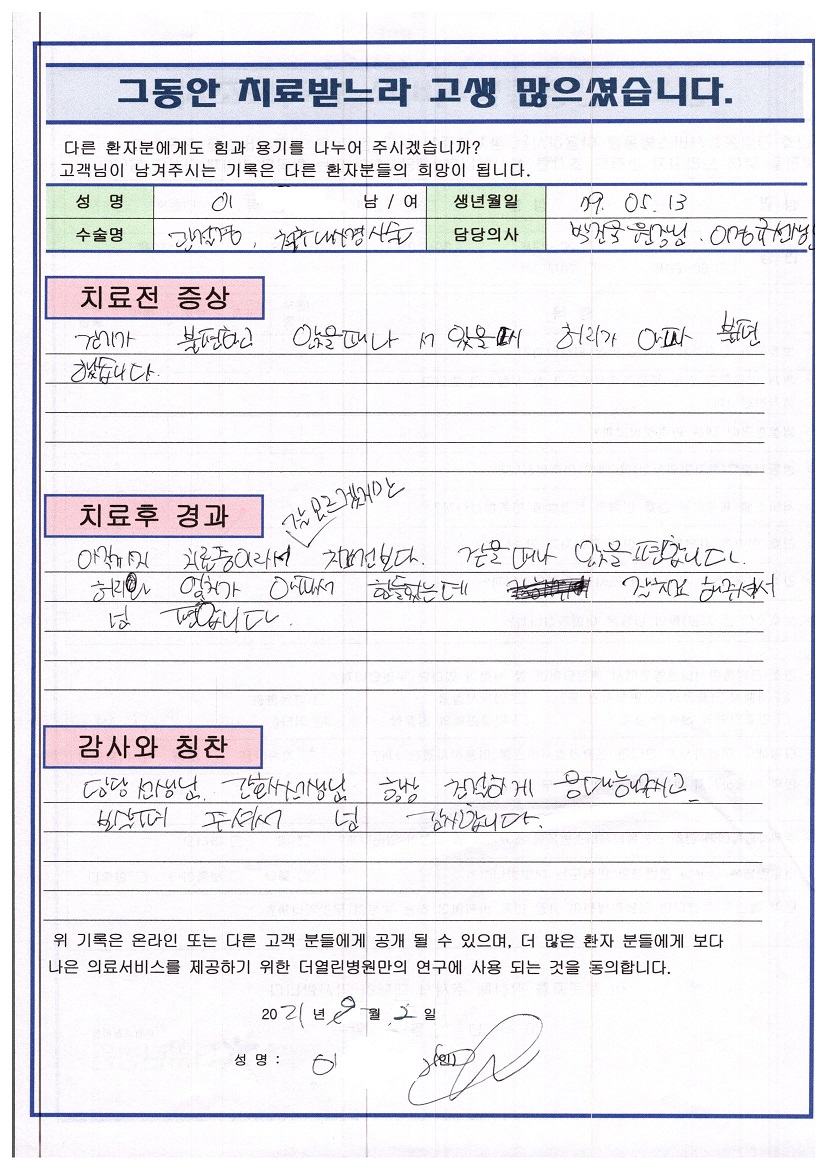 그동안 치료받느라 고생 많으셨습니다.
다른 환자분에게도 힘과 용기를 나누어 주시겠습니까?
고객님이 남겨주시는 기록은 다른 환자분들의 희망이 됩니다.
성 명 이 남 / 여 생년월일 79. 05. 13
수술명 담당의사
치료전 증상
걷기가 불편하고 앉을때나 서 있을때 허리가 아파 불편
했습니다.
치료후 경과
잘모르겠지만
아직까지 치료중이라서 치료전보다. 걷을때나 앉을 편합니다.
허리와 엄치가 아파서 힘들었는데 해주셔서
넘 편합니다.
감사와 칭찬
담당 선생님. 간호사선생님 항상 친절하게 응대해주시고
넘 감사합니다.
위 기록은 온라인 또는 다른 고객 분들에게 공개 될 수 있으며, 더 많은 환자 분들에게 보다
나은 의료서비스를 제공하기 위한 더열린병원만의 연구에 사용 되는 것을 동의합니다.
2021 년 9 월 2 일
성 명 : 이 (인)